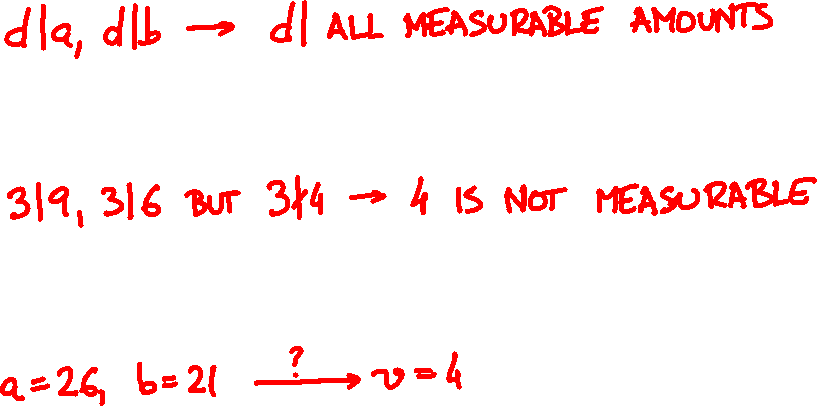 d|a, d|b → d| ALL MEASURABLE AMOUNTS
3|9, 3|6 BUT 3∤4 → 4 IS NOT MEASURABLE
a=26, b=21 —?→ v=4